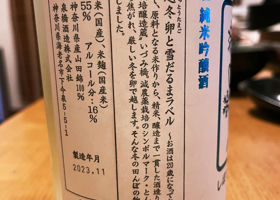 純米吟醸酒
冬卵と雪だるまラベル ～お酒は20歳になって
、原料となる米作りから、精米、醸造まで一貫した酒造り
培醸造蔵」いづみ橋。減農薬栽培のシンボルマーク・とん
、厳しい冬を卵で越します。そんな冬の田んぼの
ました。
米(国産)、米麹(国産米)
55% アルコール分:16%
神奈川県産山田錦100%
泉橋酒造株式会社
神奈川県海老名市下今泉5-5-1
製造年月
2023.11